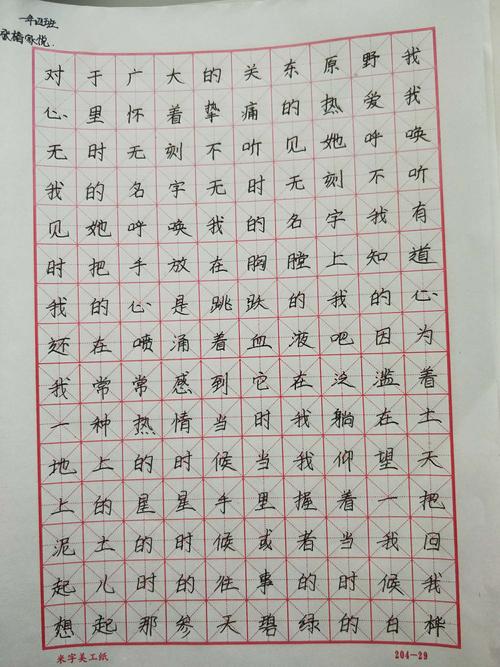 一年四班
张楕家悦.
对于广大的关东原野我
心里怀着挚痛的热爱我
无时无刻不听见她呼唤
我的名字无时无刻不听
见她呼唤我的名字我有
时把手放在胸膛上知道
我的心是跳跃的我的心
还在喷涌着血液吧因为
我常常感到它在泛滥着
一种热情当时我躺在土
地上的时候当我仰望天
上的星星手里握着一把
泥土的时候或者当我回
起儿时的往事的时候我
想起那参天碧绿的白桦
米字美工纸 204-29